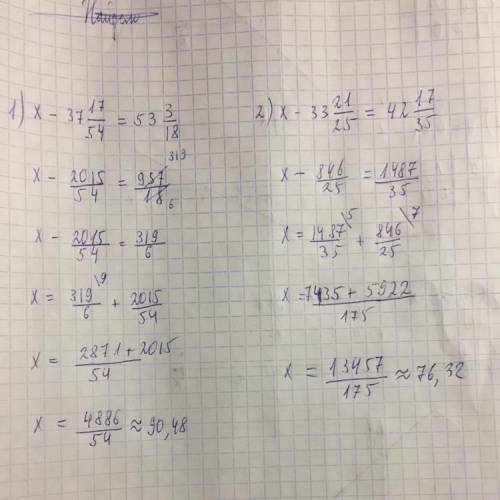 Найдем
1) x - 37 17/54 = 53 3/18
x - 2015/54 = 957/18 319 6
x - 2015/54 = 319/6
x = 319/6 \9 + 2015/54
x = 2871 + 2015/54
x = 4886/54 ≈ 90,48
2) x - 33 21/25 = 42 17/35
x - 846/25 = 1487/35
x = 1487/35 \5 + 846/25 \7
x = 7435 + 5922/175
x = 13457/175 ≈ 76,32